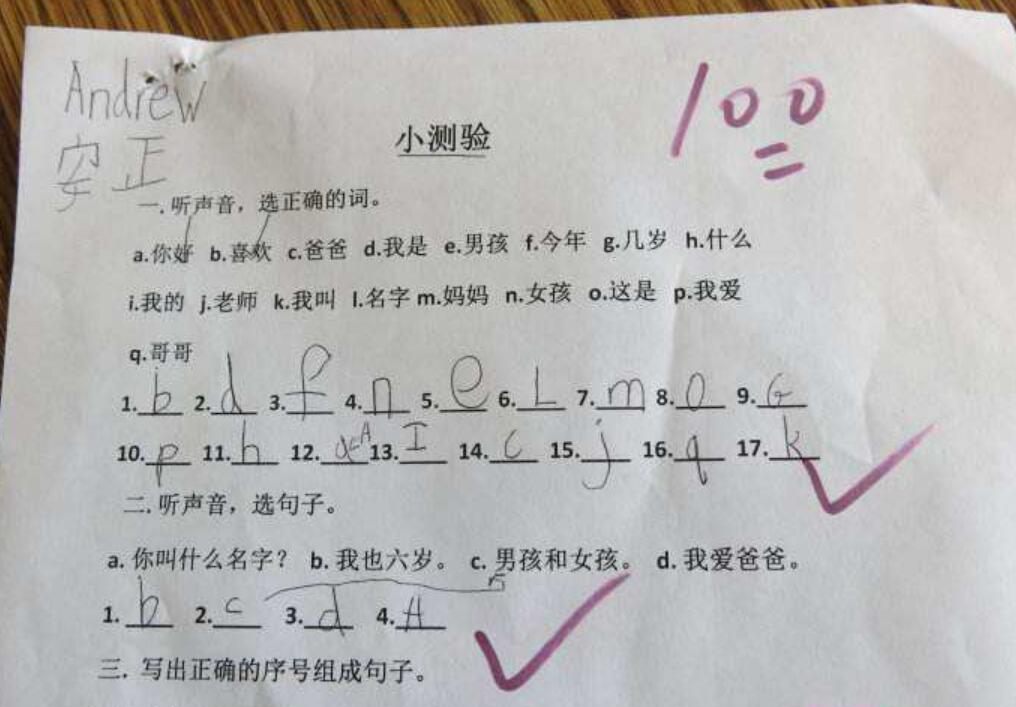 Andrew
安正
100
小测验
一.听声音，选正确的词。
a.你好 b.喜欢 c.爸爸 d.我是 e.男孩 f.今年 g.几岁 h.什么
i.我的 j.老师 k.我叫 l.名字 m.妈妈 n.女孩 o.这是 p.我爱
q.哥哥
1. b 2. d 3. f 4. n 5. e 6. L 7. m 8. o 9. G
10. p 11. h 12. A 13. I 14. c 15. j 16. q 17. k
二.听声音，选句子。
a. 你叫什么名字？ b. 我也六岁。 c. 男孩和女孩。 d. 我爱爸爸。
1. b 2. c 3. d 4. A
三. 写出正确的序号组成句子。